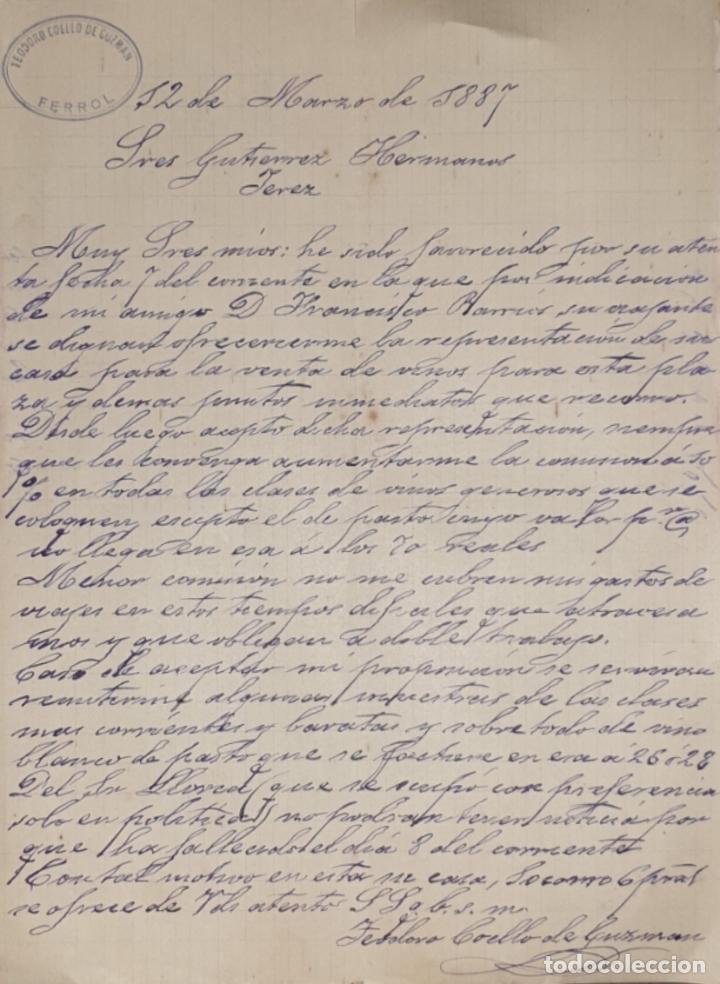 TEODORO COELLO DE GUZMAN
FERROL
12 de Marzo de 1887
Sres Gutierrez Hermanos
Jerez
Muy Sres mios: he sido favorecido por su aten
ta fecha 7 del corriente en la que por indicacion
de mi amigo D Francisco Barrios, su viajante
se dignan ofrecercerme la representación de su
casa para la venta de vinos para esta pla
za y demas puntos inmediatos que recorro.
Desde luego acepto dicha representación, siempre
que les convenga aumentarme la comision a 10
% en todas las clases de vinos generosos que se
coloquen, escepto el de pasto cuyo valor
no llega en esa á los 70 reales
Menor comisión no me cubren mis gastos de
viajes en estos tiempos dificiles que atravesa
mos y que obligan a doble trabajo.
Caso de aceptar mi proposición se serviran
remitirme algunas muestras de las clases
mas corrientes y baratas y sobre todo de vino
blanco de pasto que se facture en esa á 26 ó 28
Del Sr Lloved (que se ocupó con preferencia
solo en politica) no podran tener noticia por
que ha fallecido el dia 8 del corriente
Con tal motivo en esta su casa, Socorro 6 pral
se ofrece de Vds atentos S S q. b. s. m.
Teodoro Coello de Guzman
todocoleccion